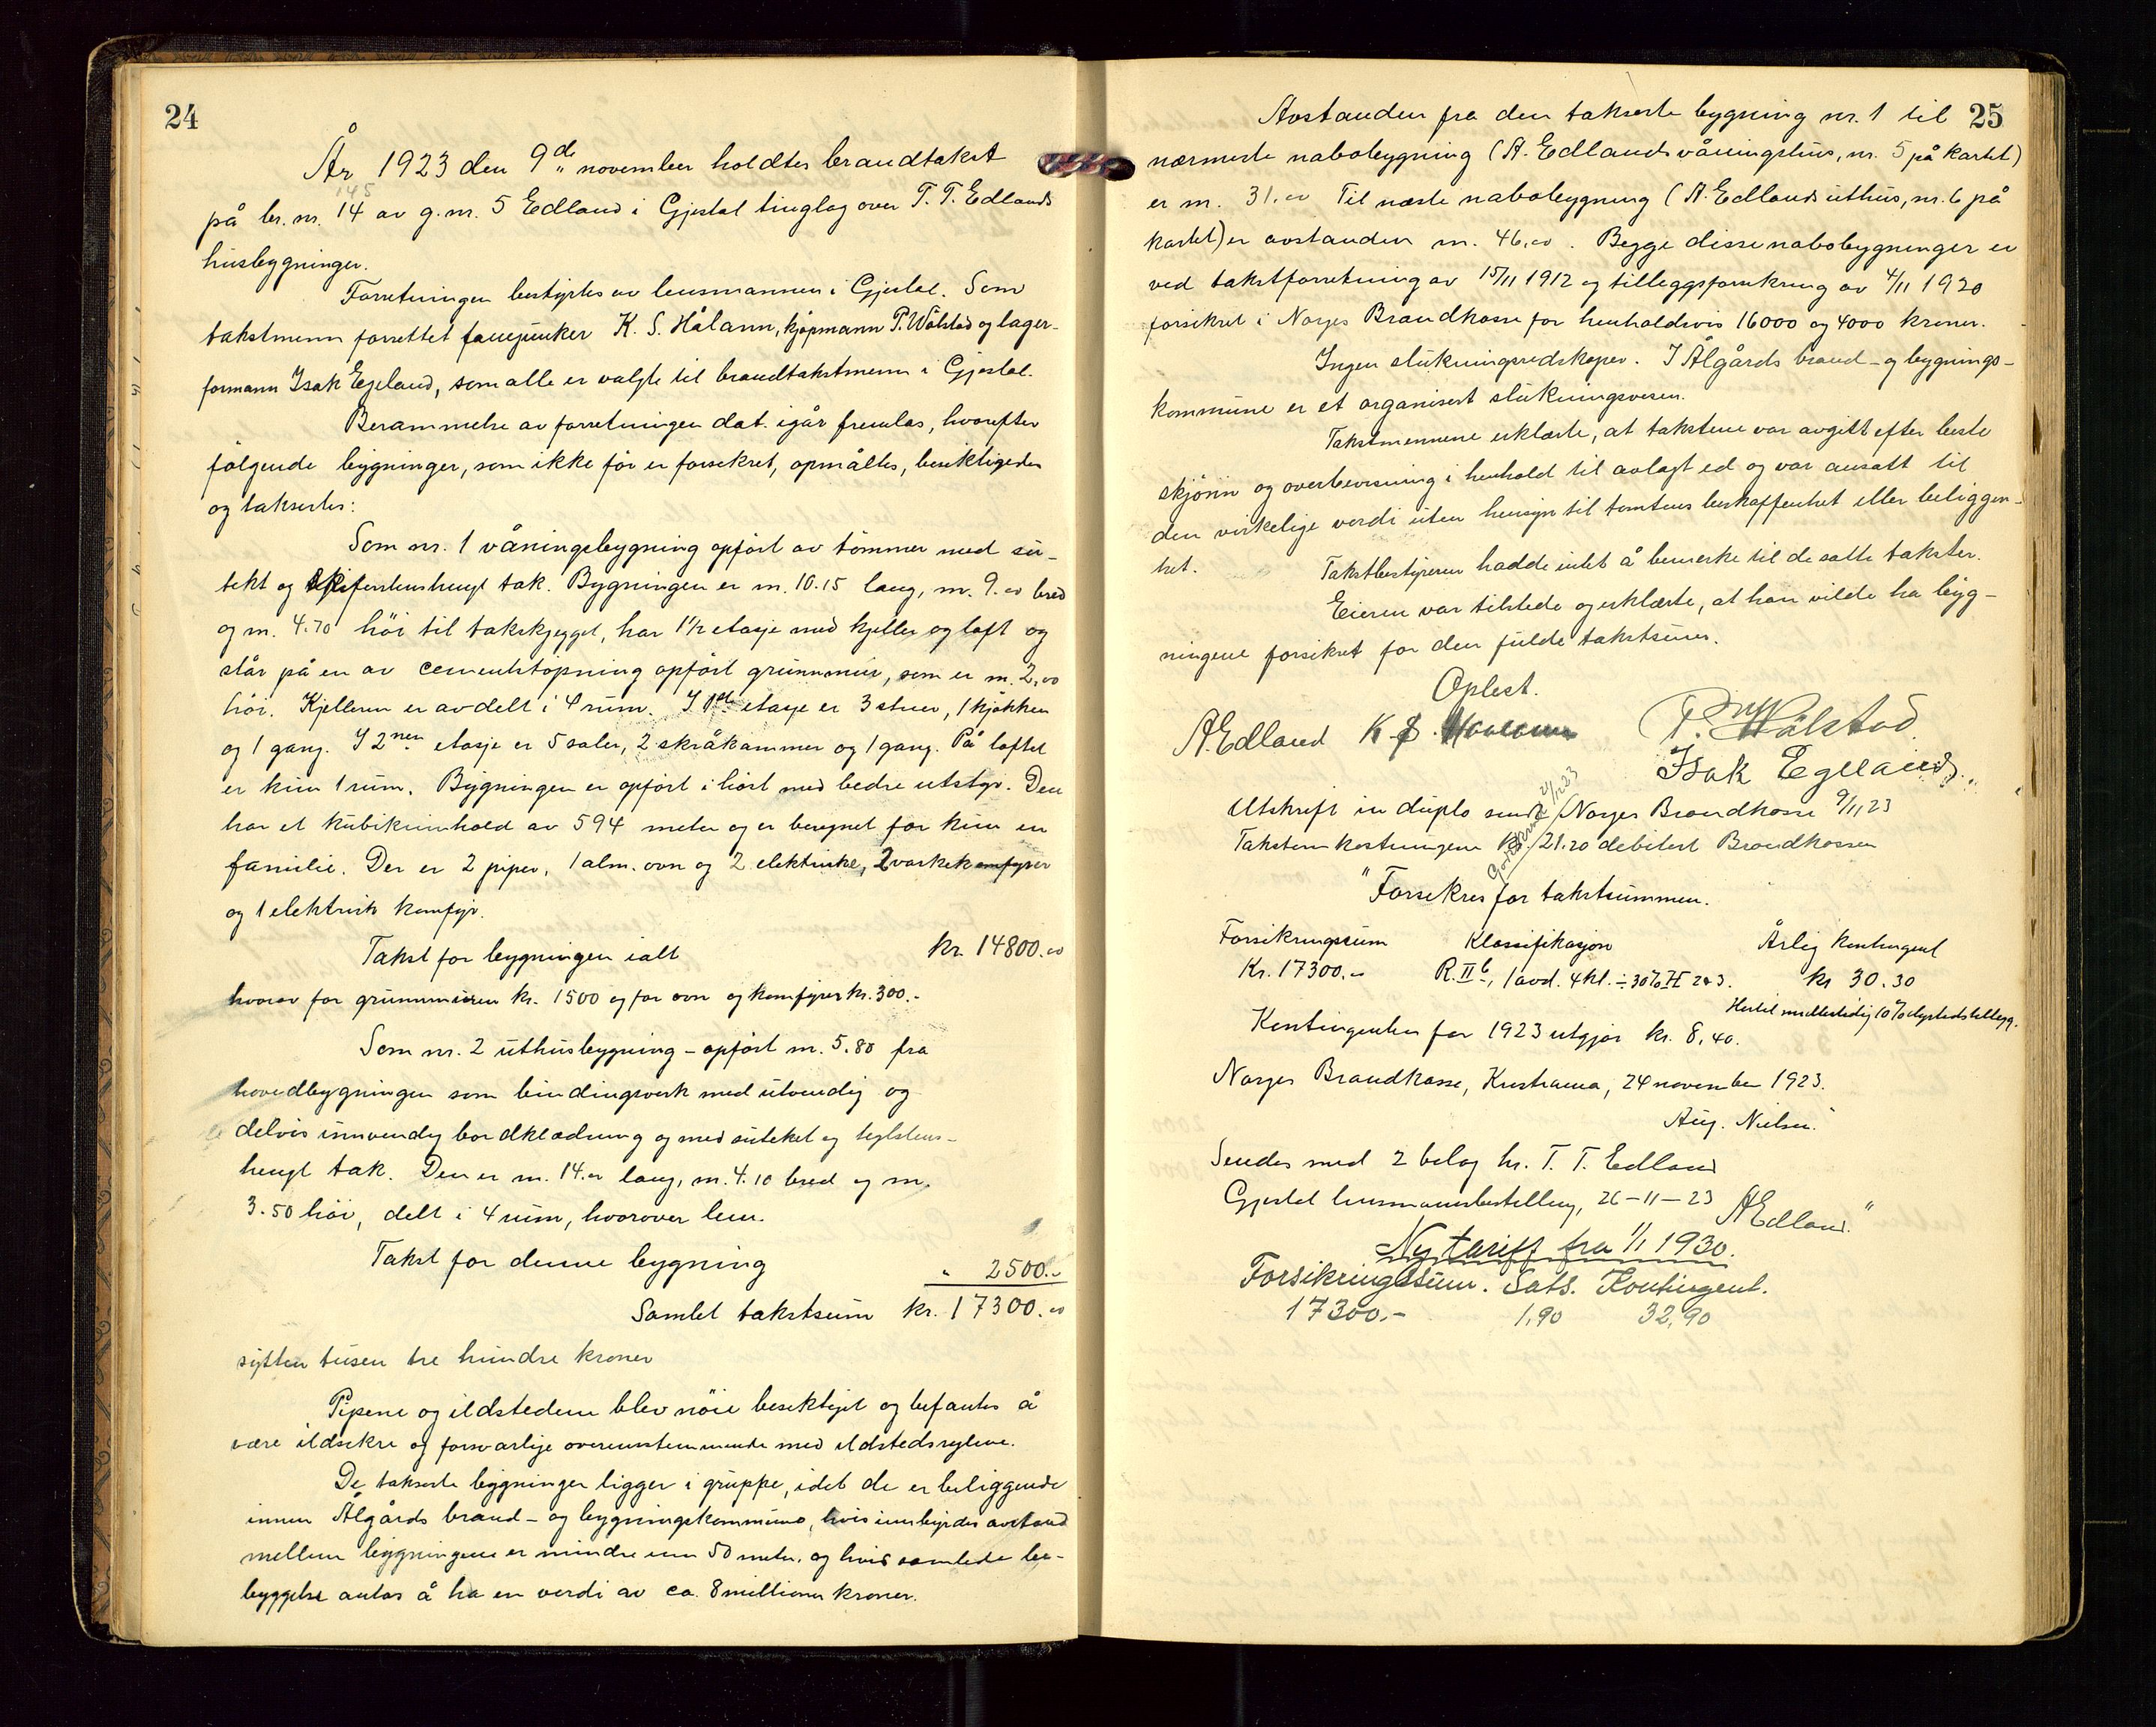 24
År 1923 den 9de november holdtes brandtakst
145
på br. nr. 14 av g. nr. 5 Edland i Gjestal tinglag over T. T. Edlands
husbygninger.
Forretningen bestyrtes av lensmannen i Gjestal. Som
takstmenn forrettet fanejunker K. S. Hålann, kjøpmann P. Wålstad og lager-
formann Isak Egeland, som alle er valgte til brandtakstmenn i Gjestal.
Berammelse av forretningen dat. igår fremlas, hvorefter
følgende bygninger, som ikke før er forsekret, opmåltes, besiktigedes
og taksertes:
Som nr. 1 våningsbygning opført av tømmer med su-
tekt og skifferstenshengt tak. Bygningen er m. 10.15 lang, m. 9.00 bred
og m. 4.70 höi til takskjegget, har 1 1/2 etasje med kjeller og loft og
står på en av cementstøpning opført grunnmur, som er m. 2,00
höi. Kjelleren er avdelt i 4 rum. I 1ste etasje er 3 stuer, 1 kjøkken
og 1 gang. I 2nen etasje er 5 saler, 2 skråkammer og 1 gang. På loftet
er kun 1 rum. Bygningen er opført i høst med bedre utstyr. Den
har et kubikinnhold av 594 meter og er beregnet for kun en
familie. Der er 2 piper, 1 alm. ovn og 2 elektriske, 2 vaskekomfyrer
og 1 elektrisk komfyr.
Takst for bygningen ialt kr. 14800.00
hvorav for grunnmuren kr. 1500 og for ovn og komfyrer kr. 300.-
Som nr. 2 uthusbygning - opført m. 5.80 fra
hovedbygningen som bindingsverk med utvendig og
delvis innvendig bordklædning og med sutekt og teglstens-
hengt tak. Den er m. 14.00 lang, m. 4.10 bred og m.
3.50 höi, delt i 4 rum, hvorover lem.
Takst for denne bygning " 2500.-
Samlet takstsum kr. 17300.00
sytten tusen tre hundre kroner
Pipene og ildstedene blev nöie besiktiget og befantes å
være ildsikre og forsvarlige overensstemmende med ildstedsreglene.
De takserte bygninger ligger i gruppe, idet de er beliggende
innen Ålgårds brand- og bygningskommune, hvis innbyrdes avstand
mellem bygningene er mindre enn 50 meter, og hvis samlede be-
byggelse antas å ha en verdi av ca. 8 millioner kroner.
25
Avstanden fra den takserte bygning nr. 1 til
nærmeste nabobygning (A. Edlands våningshus, nr. 5 på kartet)
er m. 31.00 Til næste nabobygning (A. Edlands uthus, nr. 6 på
kartet) er avstanden m. 46,00. Begge disse nabobygninger er
ved takstforretning av 15/11 1912 og tilleggsforsikring av 4/11 1920
forsikret i Norges Brandkasse for henholdsvis 16000 og 4000 kroner.
Ingen slukningsredskaper. I Ålgårds brand- og bygnings-
kommune er et organisert slukningsvesen.
Takstmennene erklærte, at takstene var avgitt efter beste
skjønn og overbevisning i henhold til avlagt ed og var ansatt til
den virkelige verdi uten hensyn til tomtens beskaffenhet eller beliggen-
het.
Takstbestyreren hadde intet å bemerke til de satte takster.
Eieren var tilstede og erklærte, at han vilde ha byg-
ningene forsikret for den fulde takstsum.
Oplest.
A. Edland K. S. Haalann P. Wålstad
Isak Egeland
Utskrift in duplo sendt Norges Brandkasse 9/11 23
Takstomkostningene kr. 21.20 debitert Brandkassen
Godskrevet
"Forsekres for takstsummen.
Forsikringssum Klassifikasjon Årlig kontingent
Kr. 17300.- R. II b, 1 avd. 4 kl. ÷ 30% H 2&3. kr 30.30
Hertil midlertidig 10% dyrtidstillegg.
Kontingenten for 1923 utgjør kr. 8,40.
Norges Brandkasse, Kristiania, 24 november 1923.
Aug. Nielsen."
Sendes med 2 bilag hr. T. T. Edland
Gjestal lensmannsbestilling, 26-11-23 A Edland."
Ny tariff fra 1/1 1930.
Forsikringssum. Sats. Kontingent.
17300.- 1,90 32,90